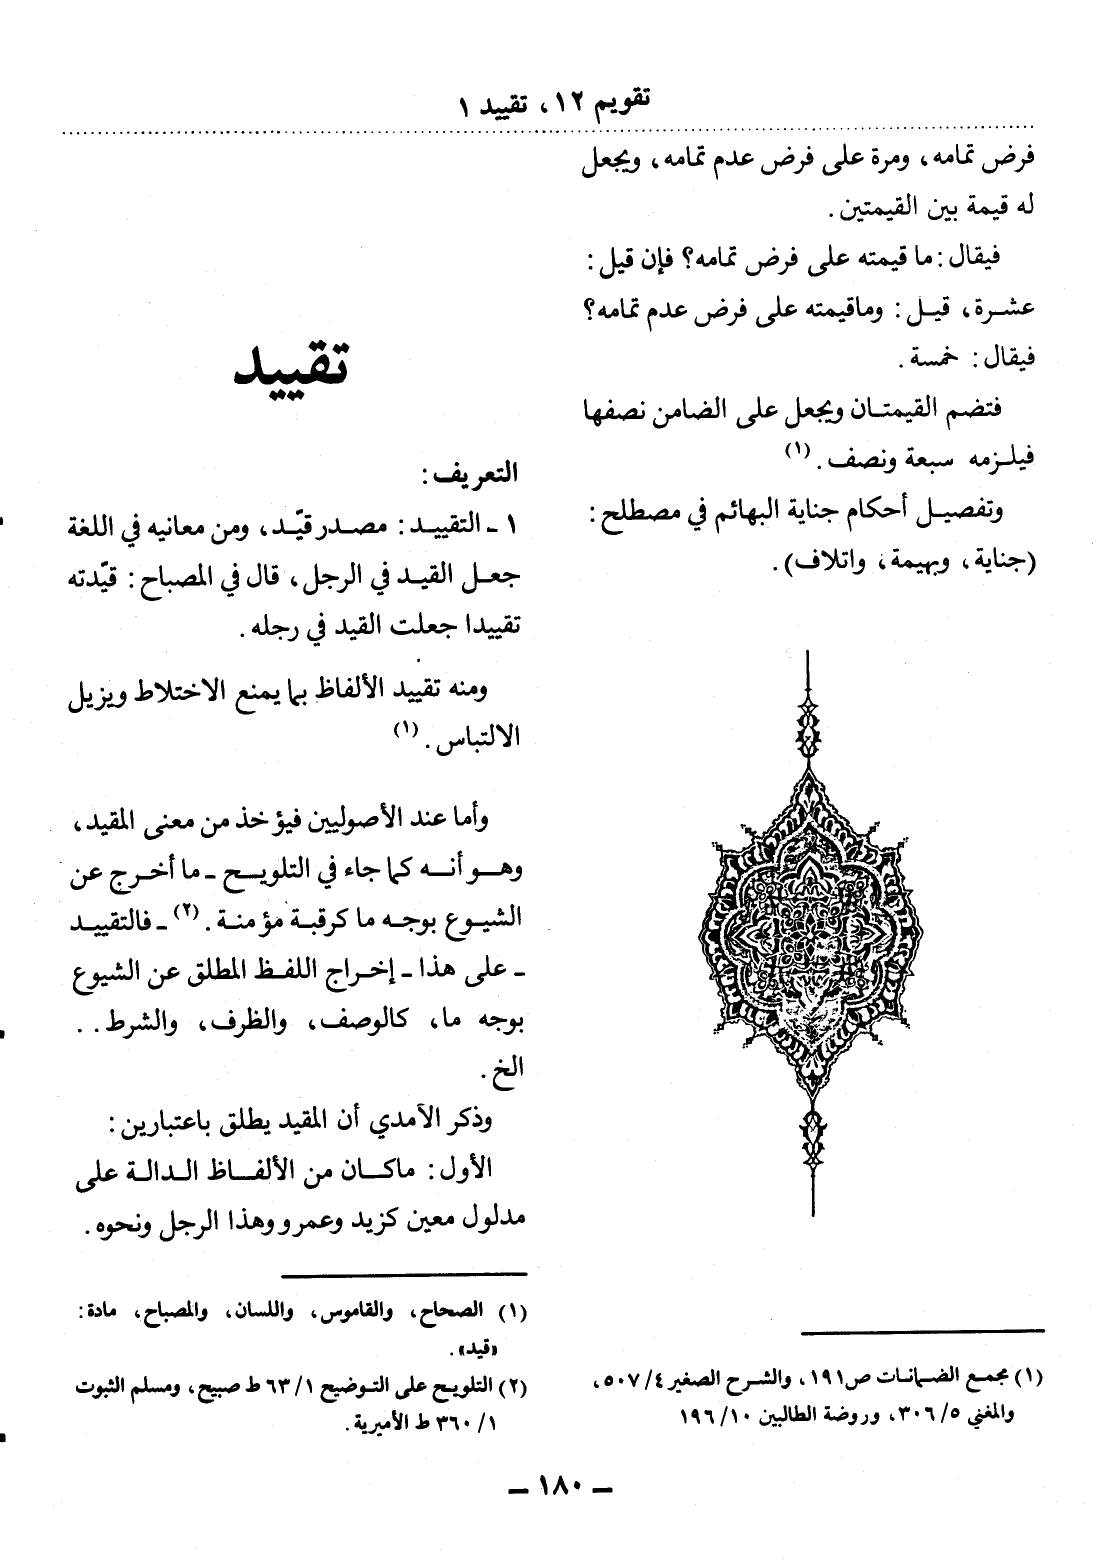 تقويم ١٢، تقييد ١
فرض تمامه، ومرة على فرض عدم تمامه، ويجعل
له قيمة بين القيمتين.
فيقال: ما قيمته على فرض تمامه؟ فإن قيل:
عشرة، قيل: وماقيمته على فرض عدم تمامه؟
فيقال: خمسة.
فتضم القيمتان ويجعل على الضامن نصفها
فيلزمه سبعة ونصف. (١)
وتفصيل أحكام جناية البهائم في مصطلح:
(جناية، وبهيمة، واتلاف).
(١) مجمع الضمانات ص١٩١، والشرح الصغير ٤/ ٥٠٧،
والمغني ٥/ ٣٠٦، وروضة الطالبين ١٠/ ١٩٦
تقييد
التعريف:
١ - التقييد: مصدر قيّد، ومن معانيه في اللغة
جعل القيد في الرجل، قال في المصباح: قيّدته
تقييدا جعلت القيد في رجله.
ومنه تقييد الألفاظ بما يمنع الاختلاط ويزيل
الالتباس. (١)
وأما عند الأصوليين فيؤخذ من معنى المقيد،
وهو أنه كما جاء في التلويح - ما أخرج عن
الشيوع بوجه ما كرقبة مؤمنة. (٢) - فالتقييد
- على هذا - إخراج اللفظ المطلق عن الشيوع
بوجه ما، كالوصف، والظرف، والشرط. .
الخ.
وذكر الآمدي أن المقيد يطلق باعتبارين:
الأول: ماكان من الألفاظ الدالة على
مدلول معين كزيد وعمرو وهذا الرجل ونحوه.
(١) الصحاح، والقاموس، واللسان، والمصباح، مادة:
«قيد».
(٢) التلويح على التوضيح ١/ ٦٣ ط صبيح، ومسلم الثبوت
١/ ٣٦٠ ط الأميرية.
- ١٨٠ -